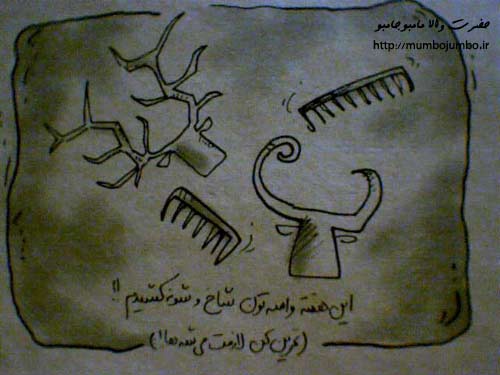 حضرت والا مامبوجامبو
http://mumbojumbo.ir
این هفته واسه تون شاخ و شونه کشیدم !!
(تمرین کن لازمت می شه ها!)